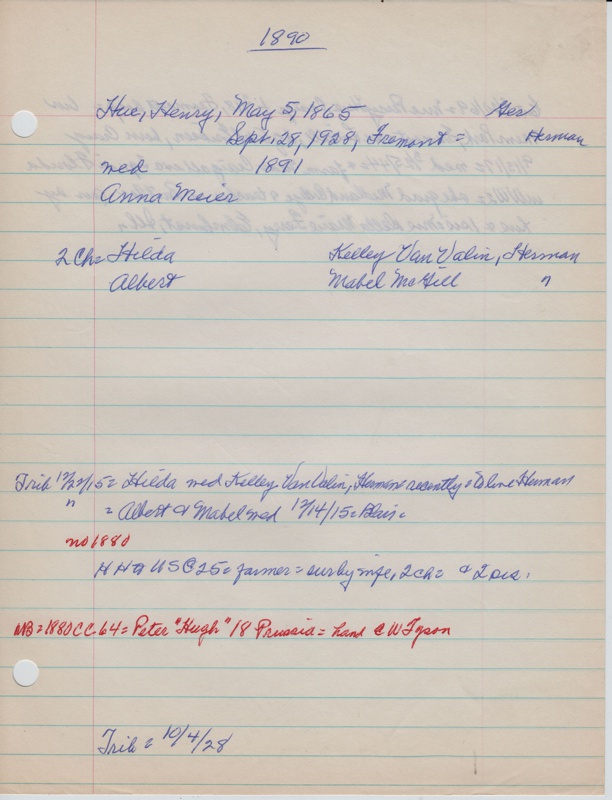 1890
Hue, Henry, May 5, 1865 Ger
Sept. 28, 1928, Fremont = Herman
med 1891
Anna Meier
2 Ch = Hilda Kelley Van Valin, Herman
Albert Mabel McGill "
Trib 12/27/15 = Hilda med Kelley Van Valin, recently = to live Herman
" = Albert & Mabel med 12/14/15 = Blair.
no 1880
= farmer = sur by wife, 2 ch = & 2 sis.
NB = 1880 CC 64 = Peter "Hugh" 18 Prussia = hand C W Tyson
Trib = 10/4/28